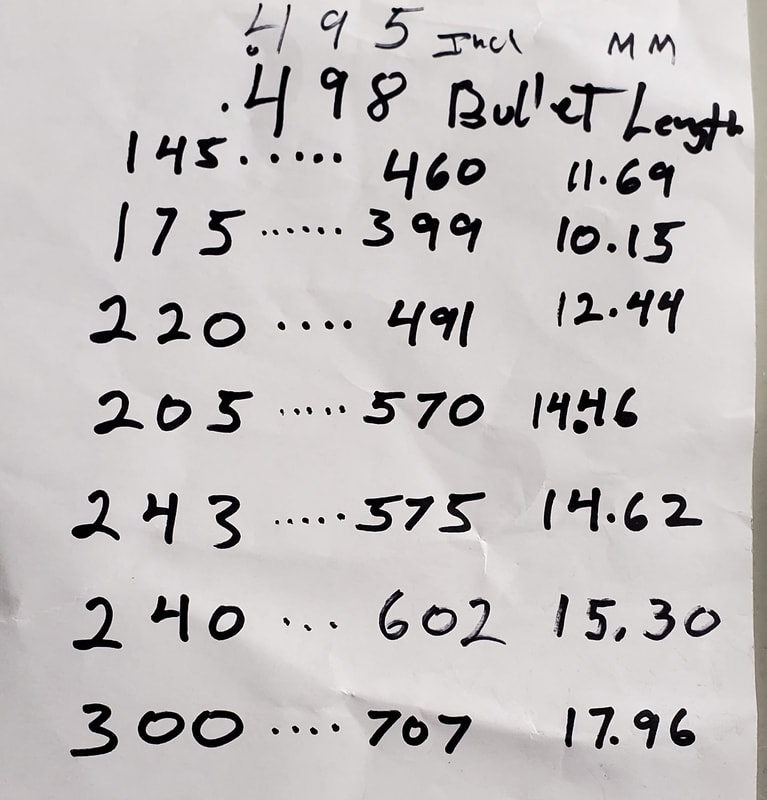 .495 Incl MM
.498 Bullet Length
145...... 460 11.69
175 ...... 399 10.15
220 .... 491 12.44
205 ..... 570 14.46
243 ..... 575 14.62
240 ... 602 15.30
300 .... 707 17.96